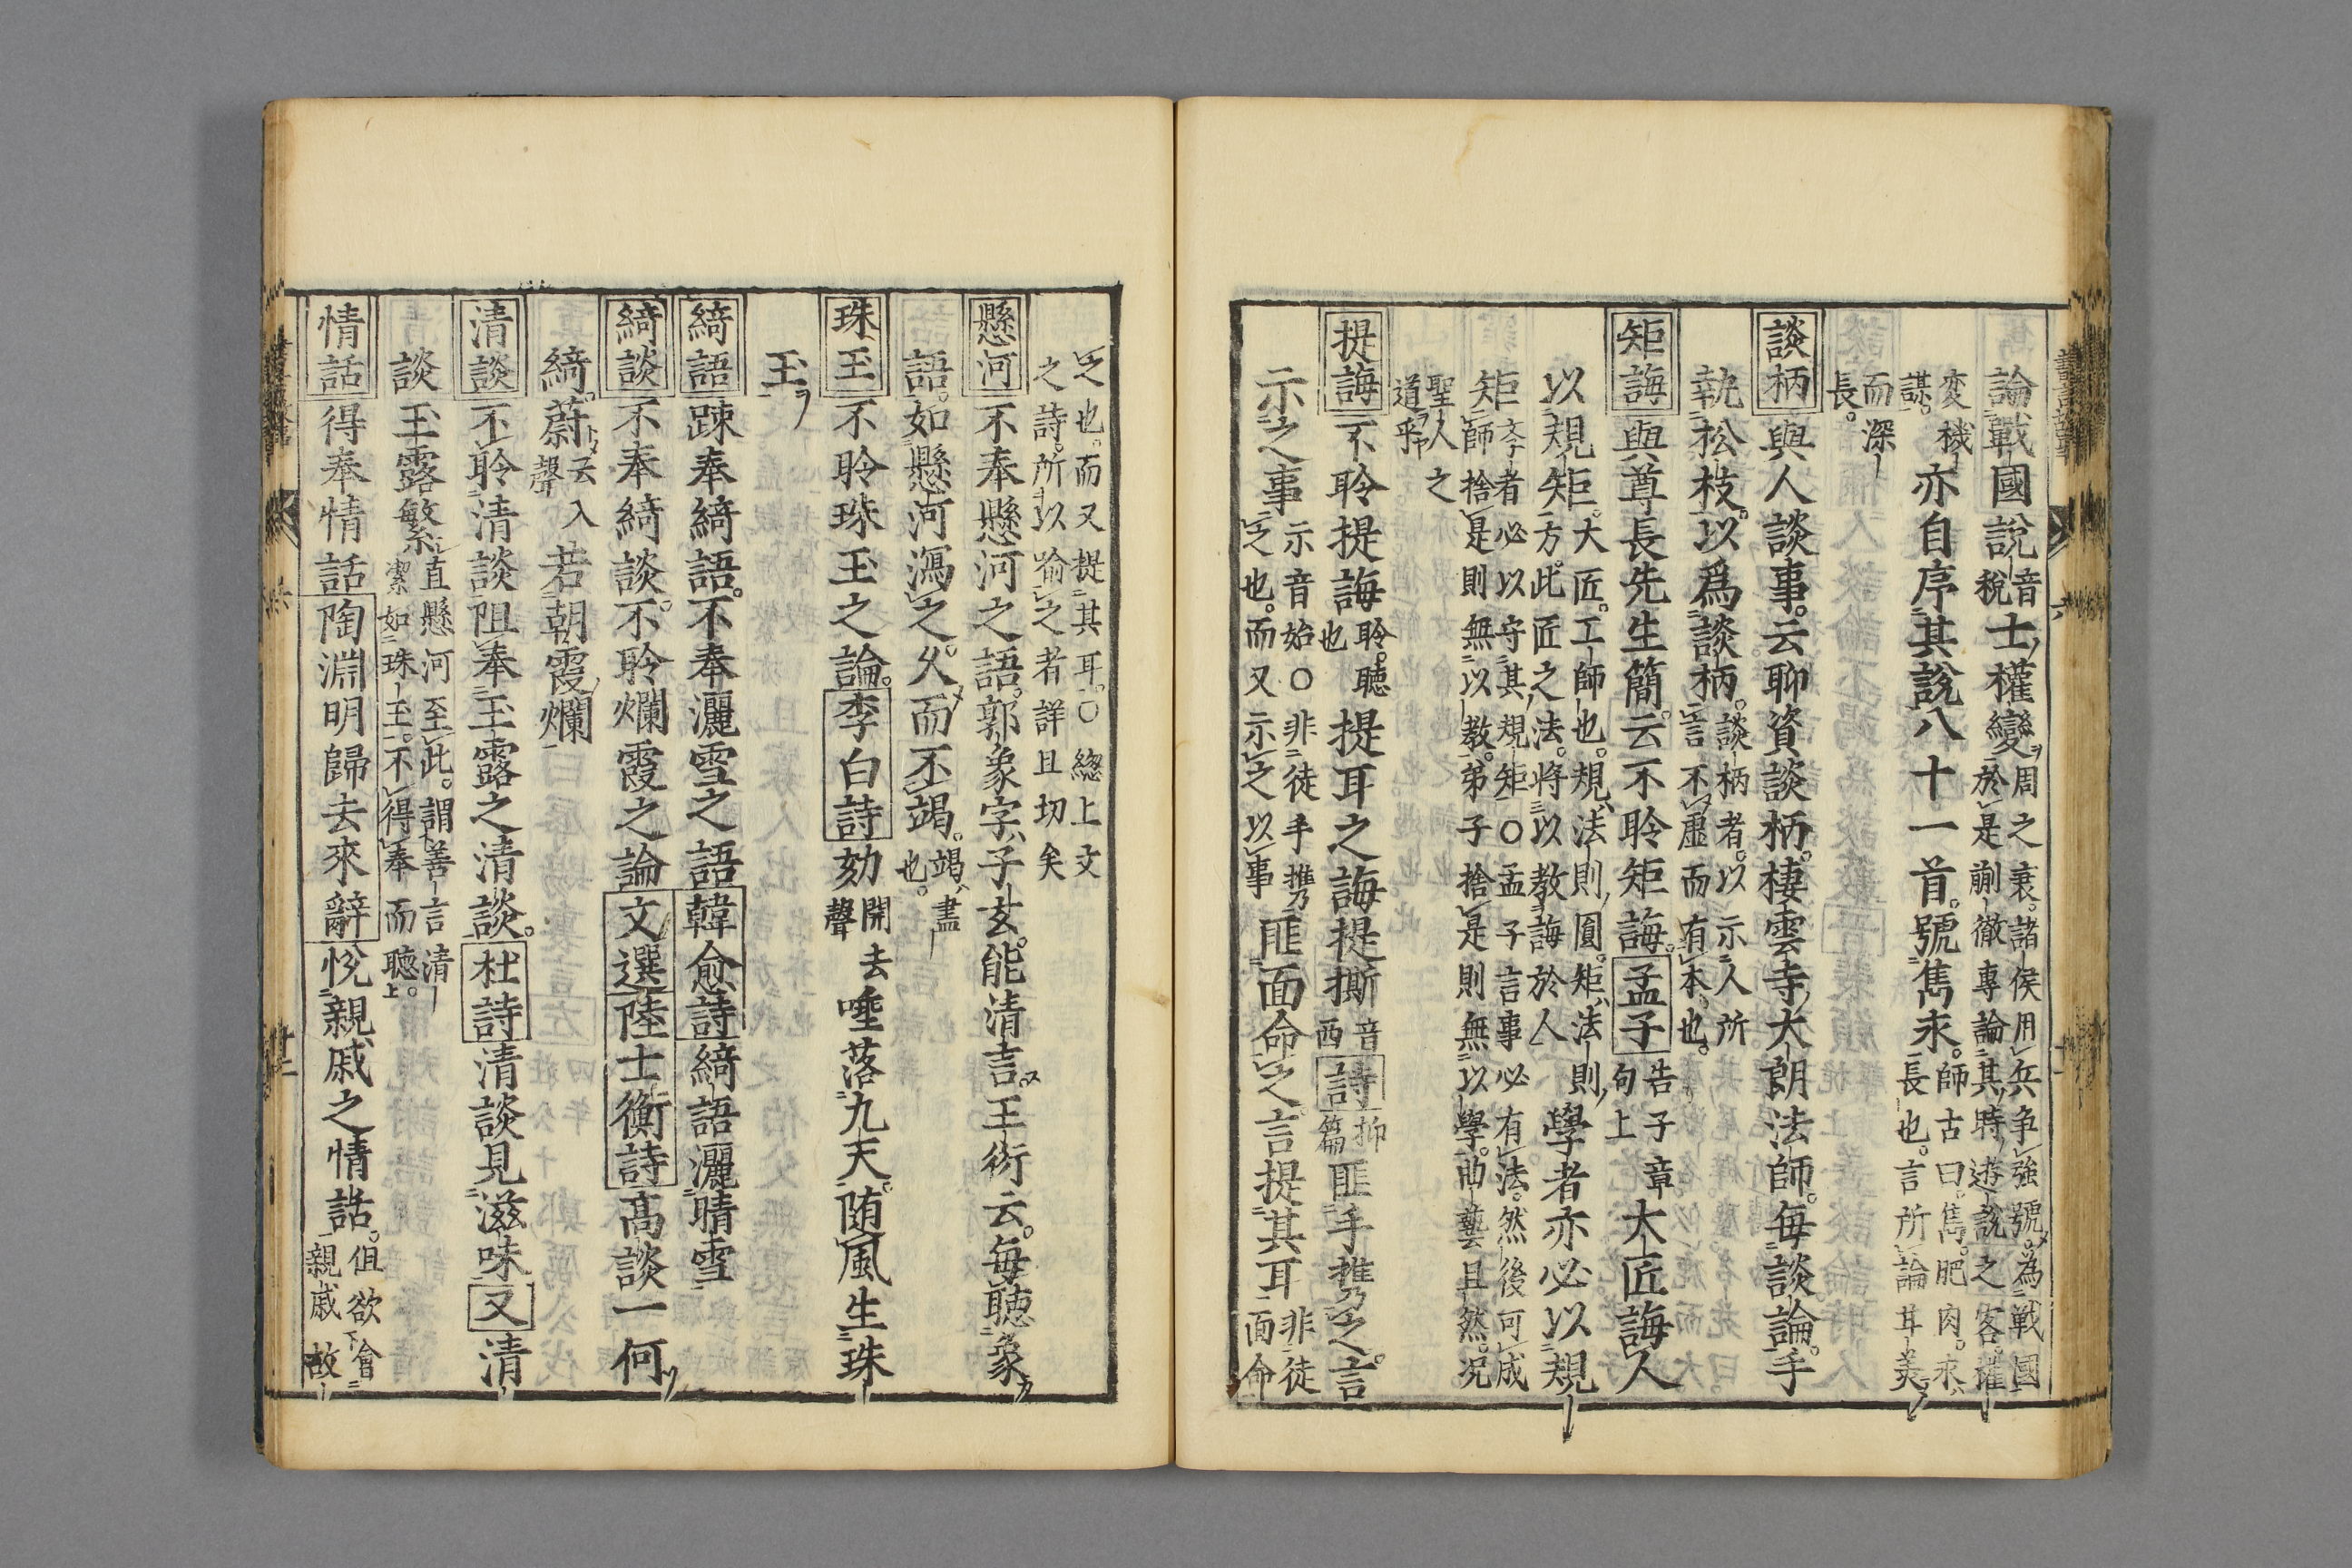 論戰國說音稅士權變周之衰諸侯用兵争強號為戰國於是蒯徹專論其時遊說之客權
変機謀亦自序其說八十一首號雋永師古曰雋肥肉永長也言所論耳美
而深長
談柄與人談事云聊資談柄棲雲寺大朗法師每談論手
執松枝以爲談柄談柄者以示人所言不虛而有本也
矩誨與尊長先生簡云不聆矩誨孟子告子章句上大匠誨人
以規矩大匠工師也規法則圓矩法則方此匠之法將以教誨於人學者亦必以規
矩文字者必以守其規矩○孟子言事必有法然後可成師捨是則無以教弟子捨是則無以學曲藝且然况
聖人之道乎
提誨不聆提誨聆聽也提耳之誨提撕音西詩抑篇匪手攜之言
示之事示音始○非徒手攜之也而又示之以事匪面命之言提其耳非徒面命
之也而又提其耳○總上文之詩所以喻之者詳且切矣
懸河不奉懸河之語郭象字子玄能清言王衍云每聽象
語如懸河瀉之久而不竭竭盡也
珠玉不聆珠玉之論李白詩劾開去聲唾落九天随風生珠
玉
綺語踈奉綺語不奉灑雪之語韓愈詩綺語灑晴雪
綺談不奉綺談不聆爛霞之論文選陸士衡詩高談一何
綺蔚云入聲若朝霞爛
清談不聆清談阻奉玉露之清談杜詩清談見滋味又清
談玉露繁直懸河至此謂善言清潔如珠玉不得奉而聽
情話得奉情話陶淵明歸去來辭悅親戚之情話但欲會親戚故